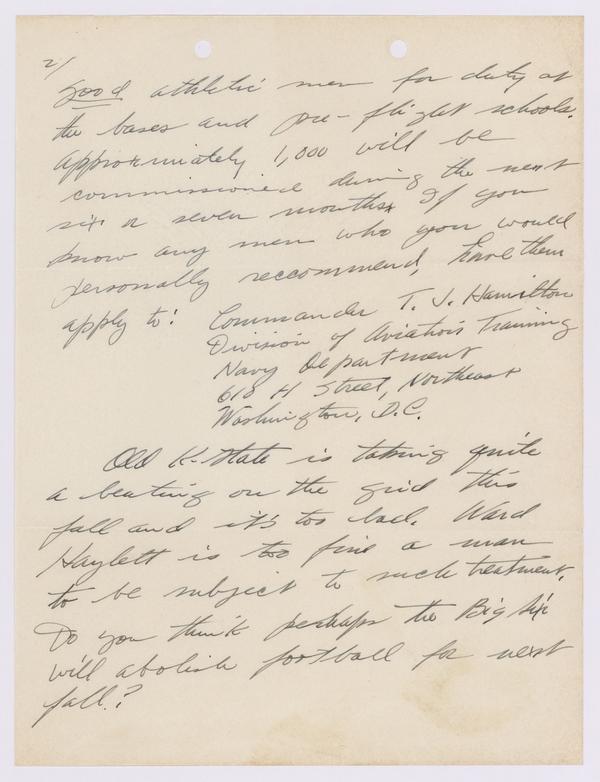 2/
good athletic men for duty at
the bases and pre-flight schools.
Approximately 1,000 will be
commissioned during the next
six or seven months. If you
know any men who you would
personally reccommend, have them
apply to: Commander T. J. Hamilton
Division of Aviation Training
Navy Department
610 H Street, Northeast
Washington, D.C.
Old K-State is taking quite
a beating on the grid this
fall and it's too bad. Ward
Haylett is too fine a man
to be subject to such treatment.
Do you think perhaps the Big Six
will abolish football for next
fall?